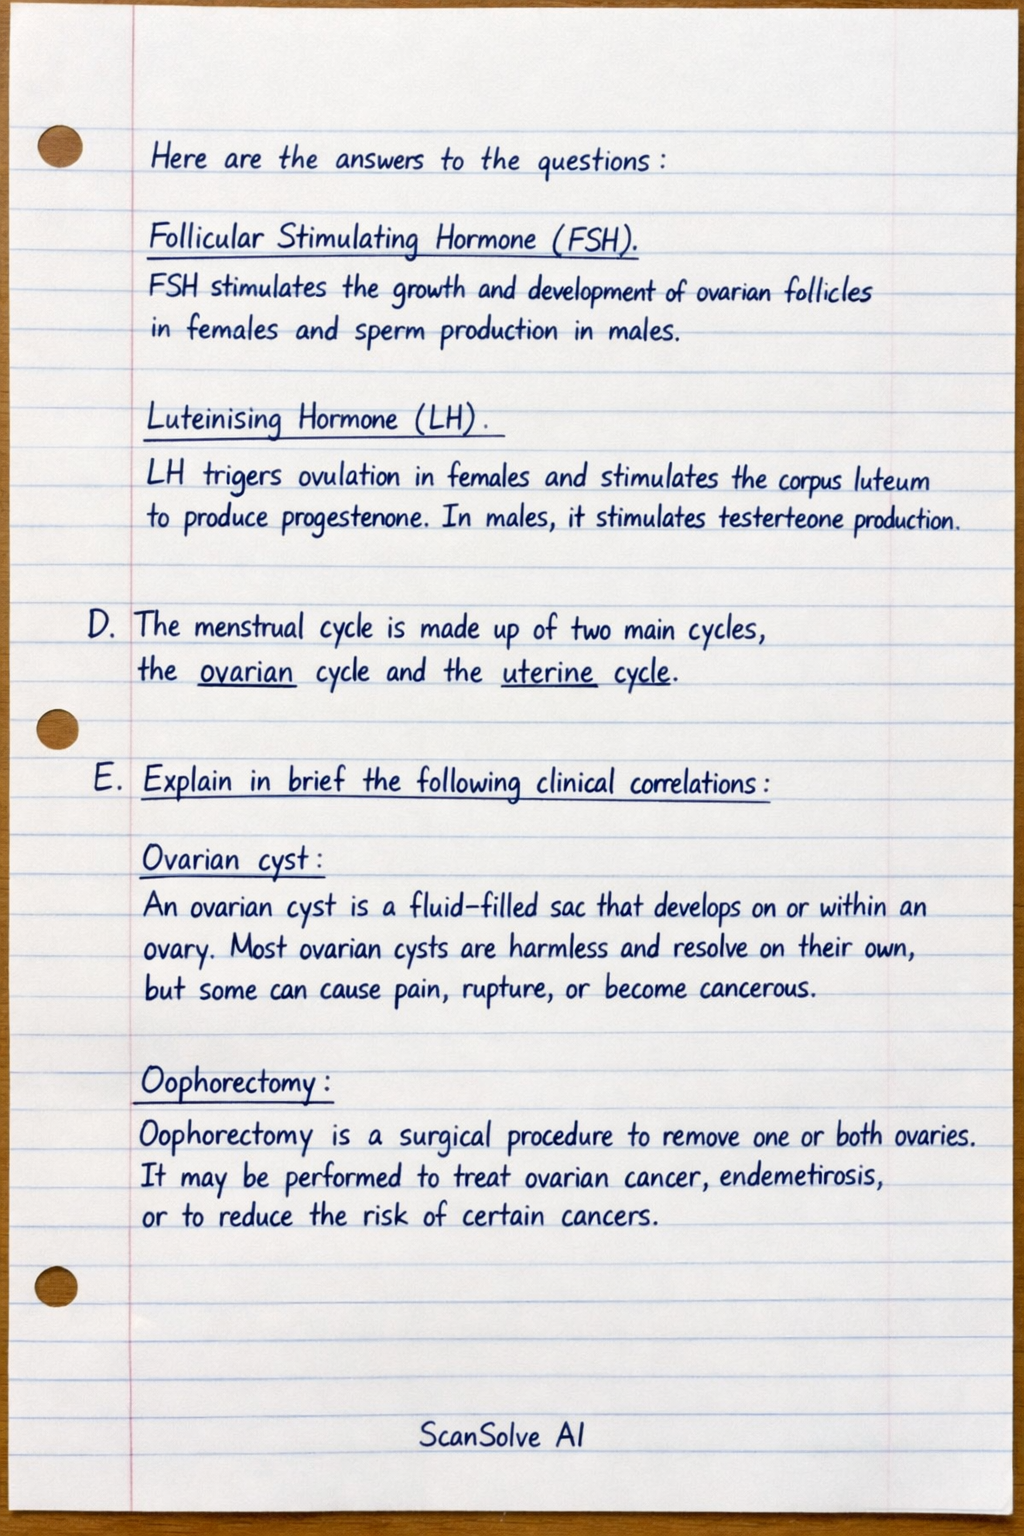 Here are the answers to the questions:
Follicular Stimulating Hormone (FSH).
FSH stimulates the growth and development of ovarian follicles
in females and sperm production in males.
Luteinising Hormone (LH).
LH trigers ovulation in females and stimulates the corpus luteum
to produce progestenone. In males, it stimulates testerteone production.
D. The menstrual cycle is made up of two main cycles,
the ovarian cycle and the uterine cycle.
E. Explain in brief the following clinical correlations:
Ovarian cyst:
An ovarian cyst is a fluid-filled sac that develops on or within an
ovary. Most ovarian cysts are harmless and resolve on their own,
but some can cause pain, rupture, or become cancerous.
Oophorectomy:
Oophorectomy is a surgical procedure to remove one or both ovaries.
It may be performed to treat ovarian cancer, endemetirosis,
or to reduce the risk of certain cancers.
ScanSolve AI